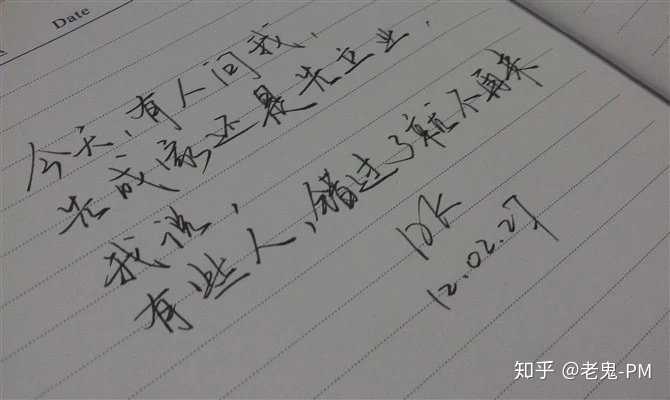 Date
今天,有人问我,
先成家还是先立业,
我说,
有些人,错过了就不再来
DK
12.02.27
知乎 @老鬼-PM